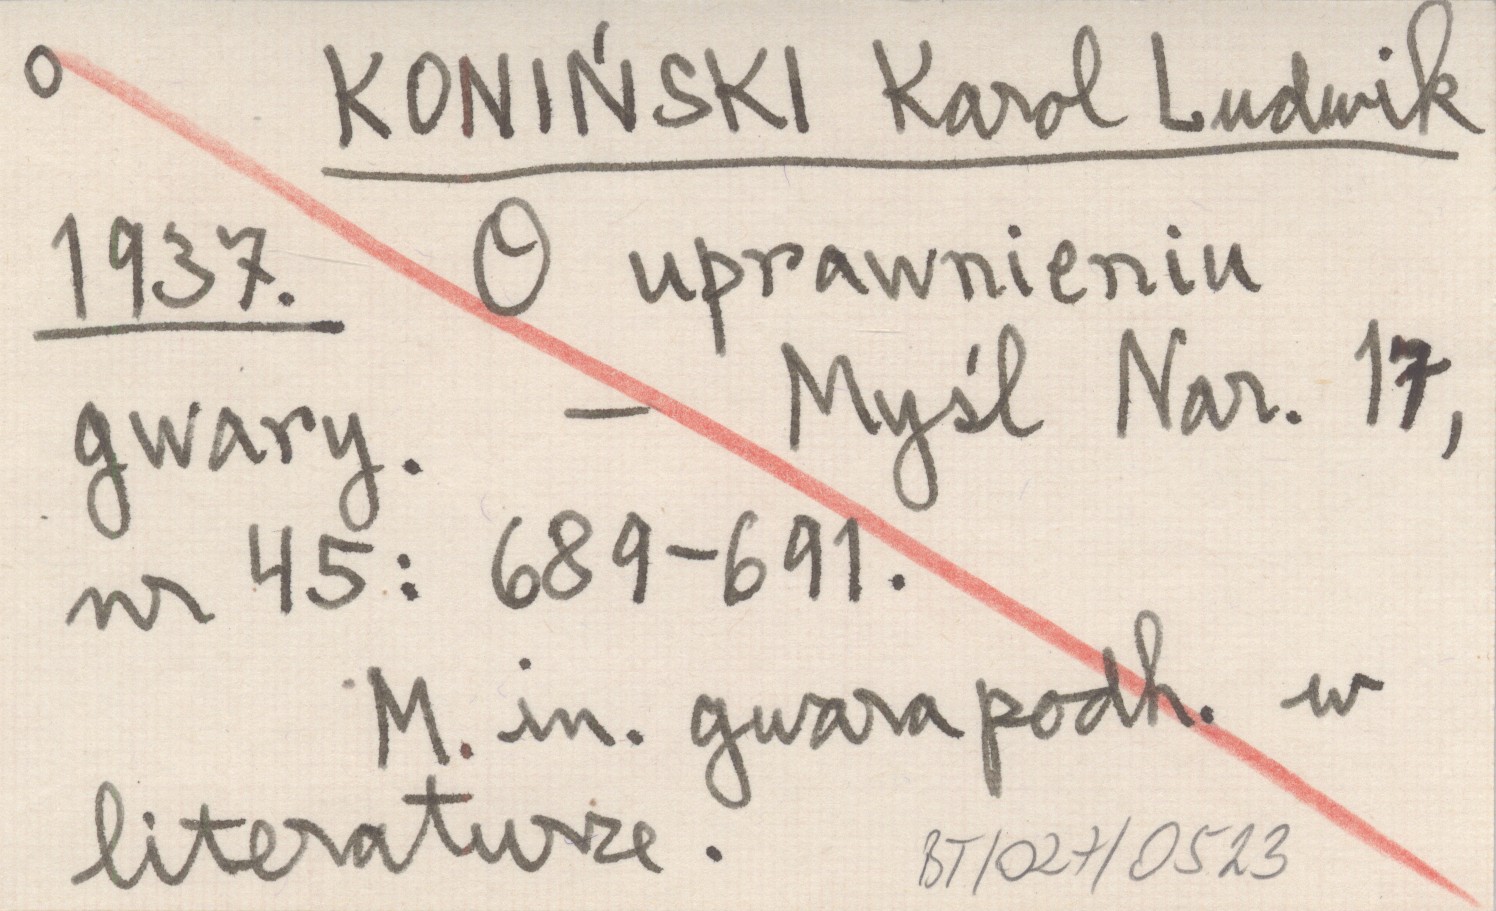 o KONIŃSKI Karol Ludwik
1937. O uprawnieniu
gwary. – Myśl Nar. 17,
nr 45: 689-691.
M. in. gwara podh. w
literaturze.
BT/027/0523